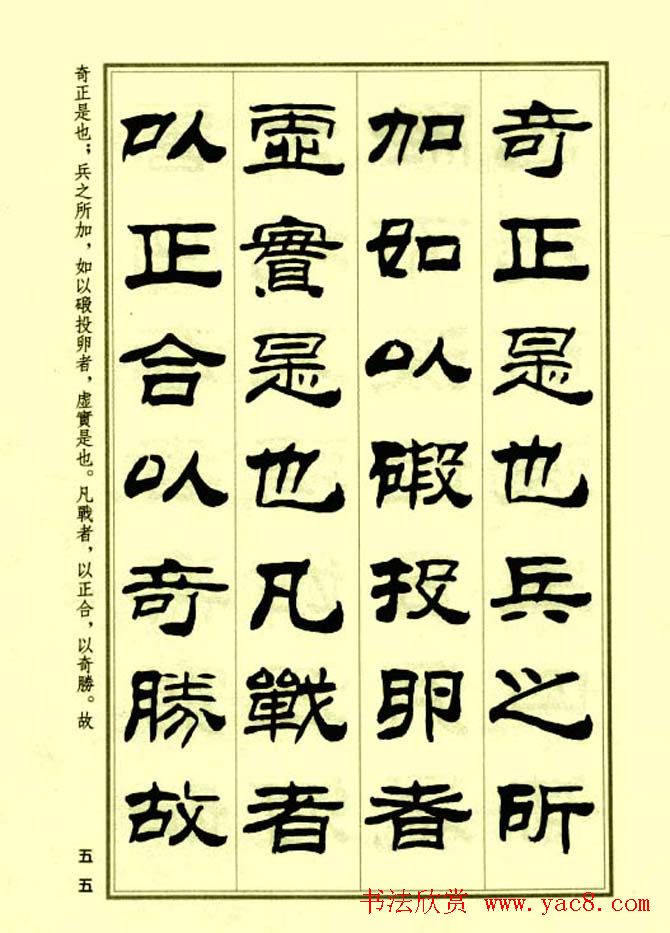 奇正是也兵之所
加如以碬投卵者
虛實是也凡戰者
以正合以奇勝故
奇正是也；兵之所加，如以碬投卵者，虛實是也。凡戰者，以正合，以奇勝。故
五五
书法欣赏 www.yac8.com